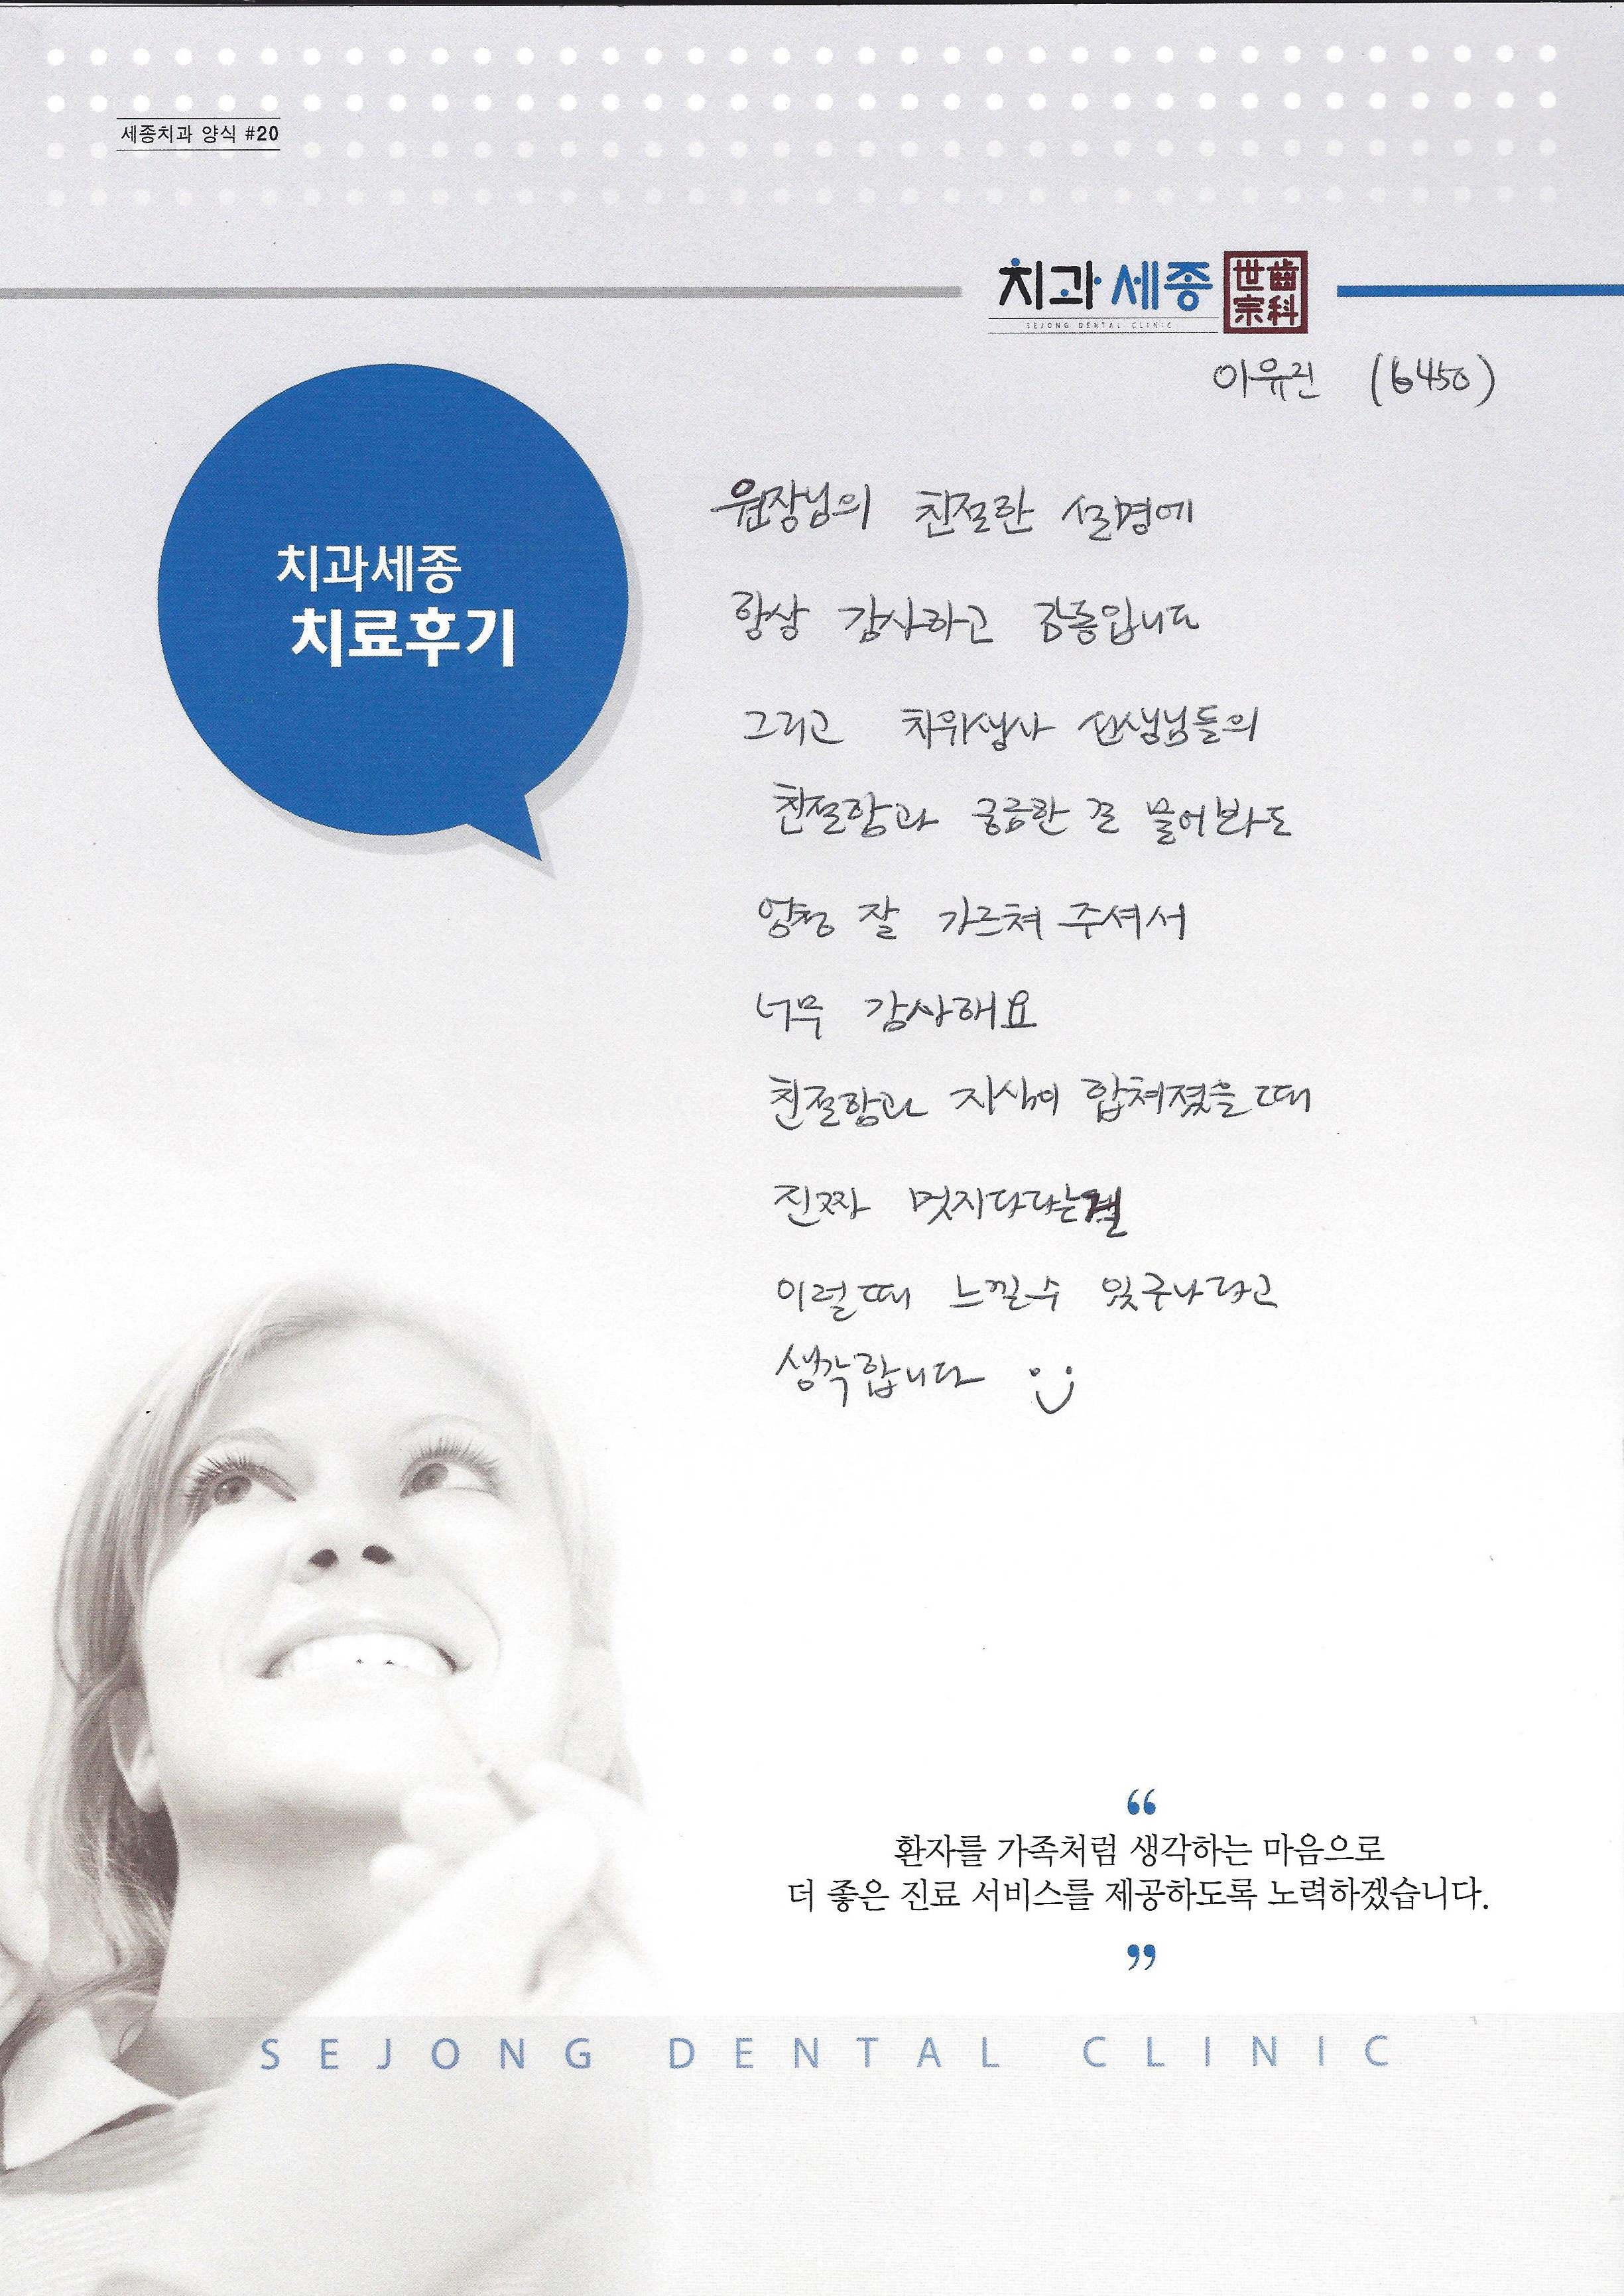 세종치과 양식 #20
치과세종 世齒宗科
SEJONG DENTAL CLINIC
이유진 (6450)
치과세종
치료후기
원장님의 친절한 설명에
항상 감사하고 감동입니다
그리고 치위생사 선생님들의
친절함과 궁금한 걸 물어봐도
엄청 잘 가르쳐 주셔서
너무 감사해요
친절함과 지식이 합쳐졌을 때
진짜 멋지다라는걸
이럴때 느낄수 있구나라고
생각합니다
“
환자를 가족처럼 생각하는 마음으로
더 좋은 진료 서비스를 제공하도록 노력하겠습니다.
”
SEJONG DENTAL CLINIC